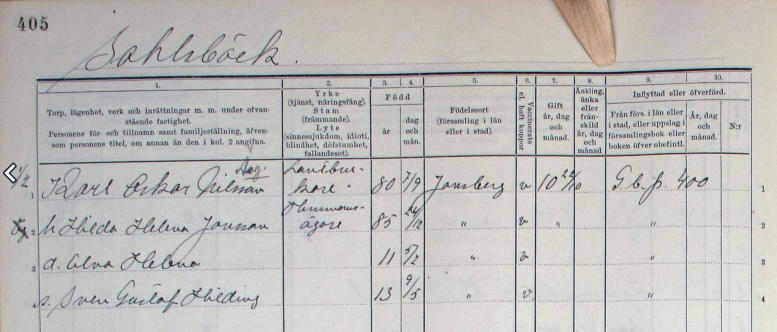 405
Dahlsbäck.
1.
2.
3.
4.
5.
6.
7.
8.
9.
10.
Torp, lägenhet, verk och inrättningar m. m. under ofvan-
stående fastighet.
Personens för- och tillnamn samt familjeställning, äfven-
som personens titel, om annan än den i kol. 2 angifna.
Yrke
(tjänst, näringsfång).
Stam
(främmande).
Lyte
(sinnessjukdom, idioti,
blindhet, döfstumhet,
fallandesot).
Född
år
dag
och
mån.
Födelseort
(församling i län
eller i stad).
Vaccinerats
el. haft koppor
Gift
år, dag
och
månad.
Änkling,
änka
eller
från-
skild
år, dag
och
månad
Inflyttad eller öfverförd.
Från förs. i län eller
i stad, eller uppslag i
församlingsbok eller
boken öfver obefintl.
År, dag
och
månad.
N:r
1 Karl Oskar Nilsson Lantbru-
kare 80 7/9 Jonsberg v 10 G. b. p. 400 1
2 h. Hilda Helena Jonsson Hemmans-
ägare 85 24/2 " v " " 2
3 d. Alva Helena 11 5/2 " v " 3
4 s. Sven Gustaf Hilding 13 9/5 " v " 4